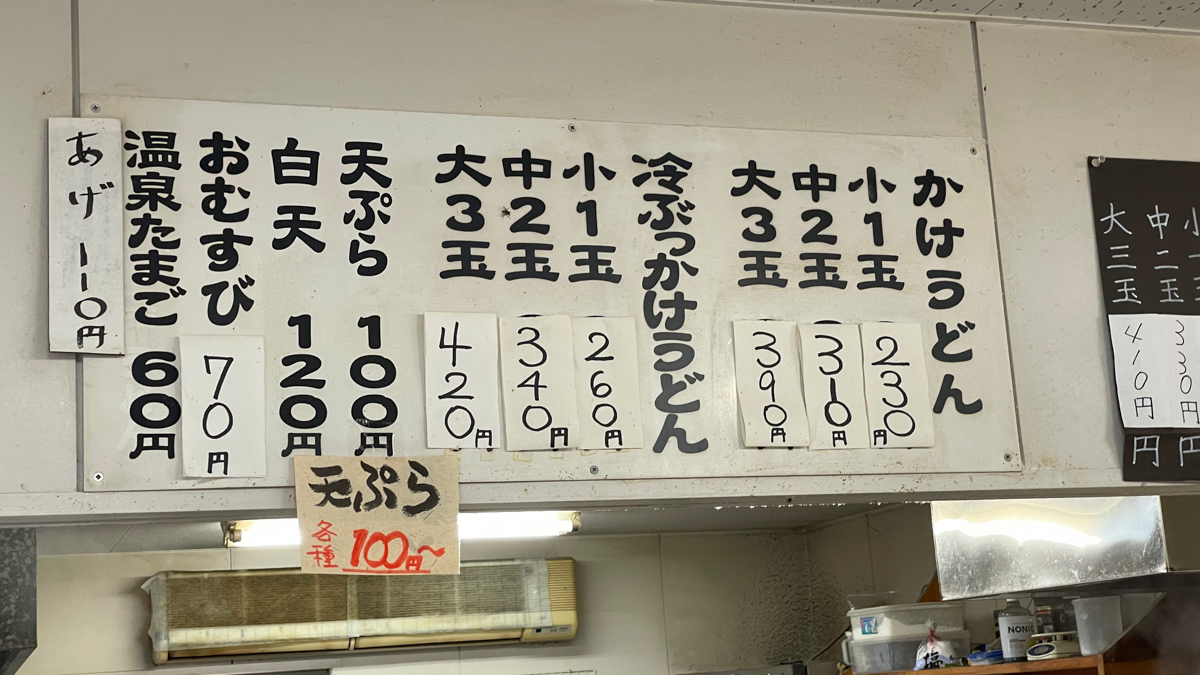 かけうどん
小1玉 230円
中2玉 310円
大3玉 390円
冷ぶっかけうどん
小1玉 260円
中2玉 340円
大3玉 420円
天ぷら 100円
白天 120円
おむすび 70円
温泉たまご 60円
あげ 110円
天ぷら
各種 100円〜
小
中二玉 330円
円
大三玉 410円
円
塩